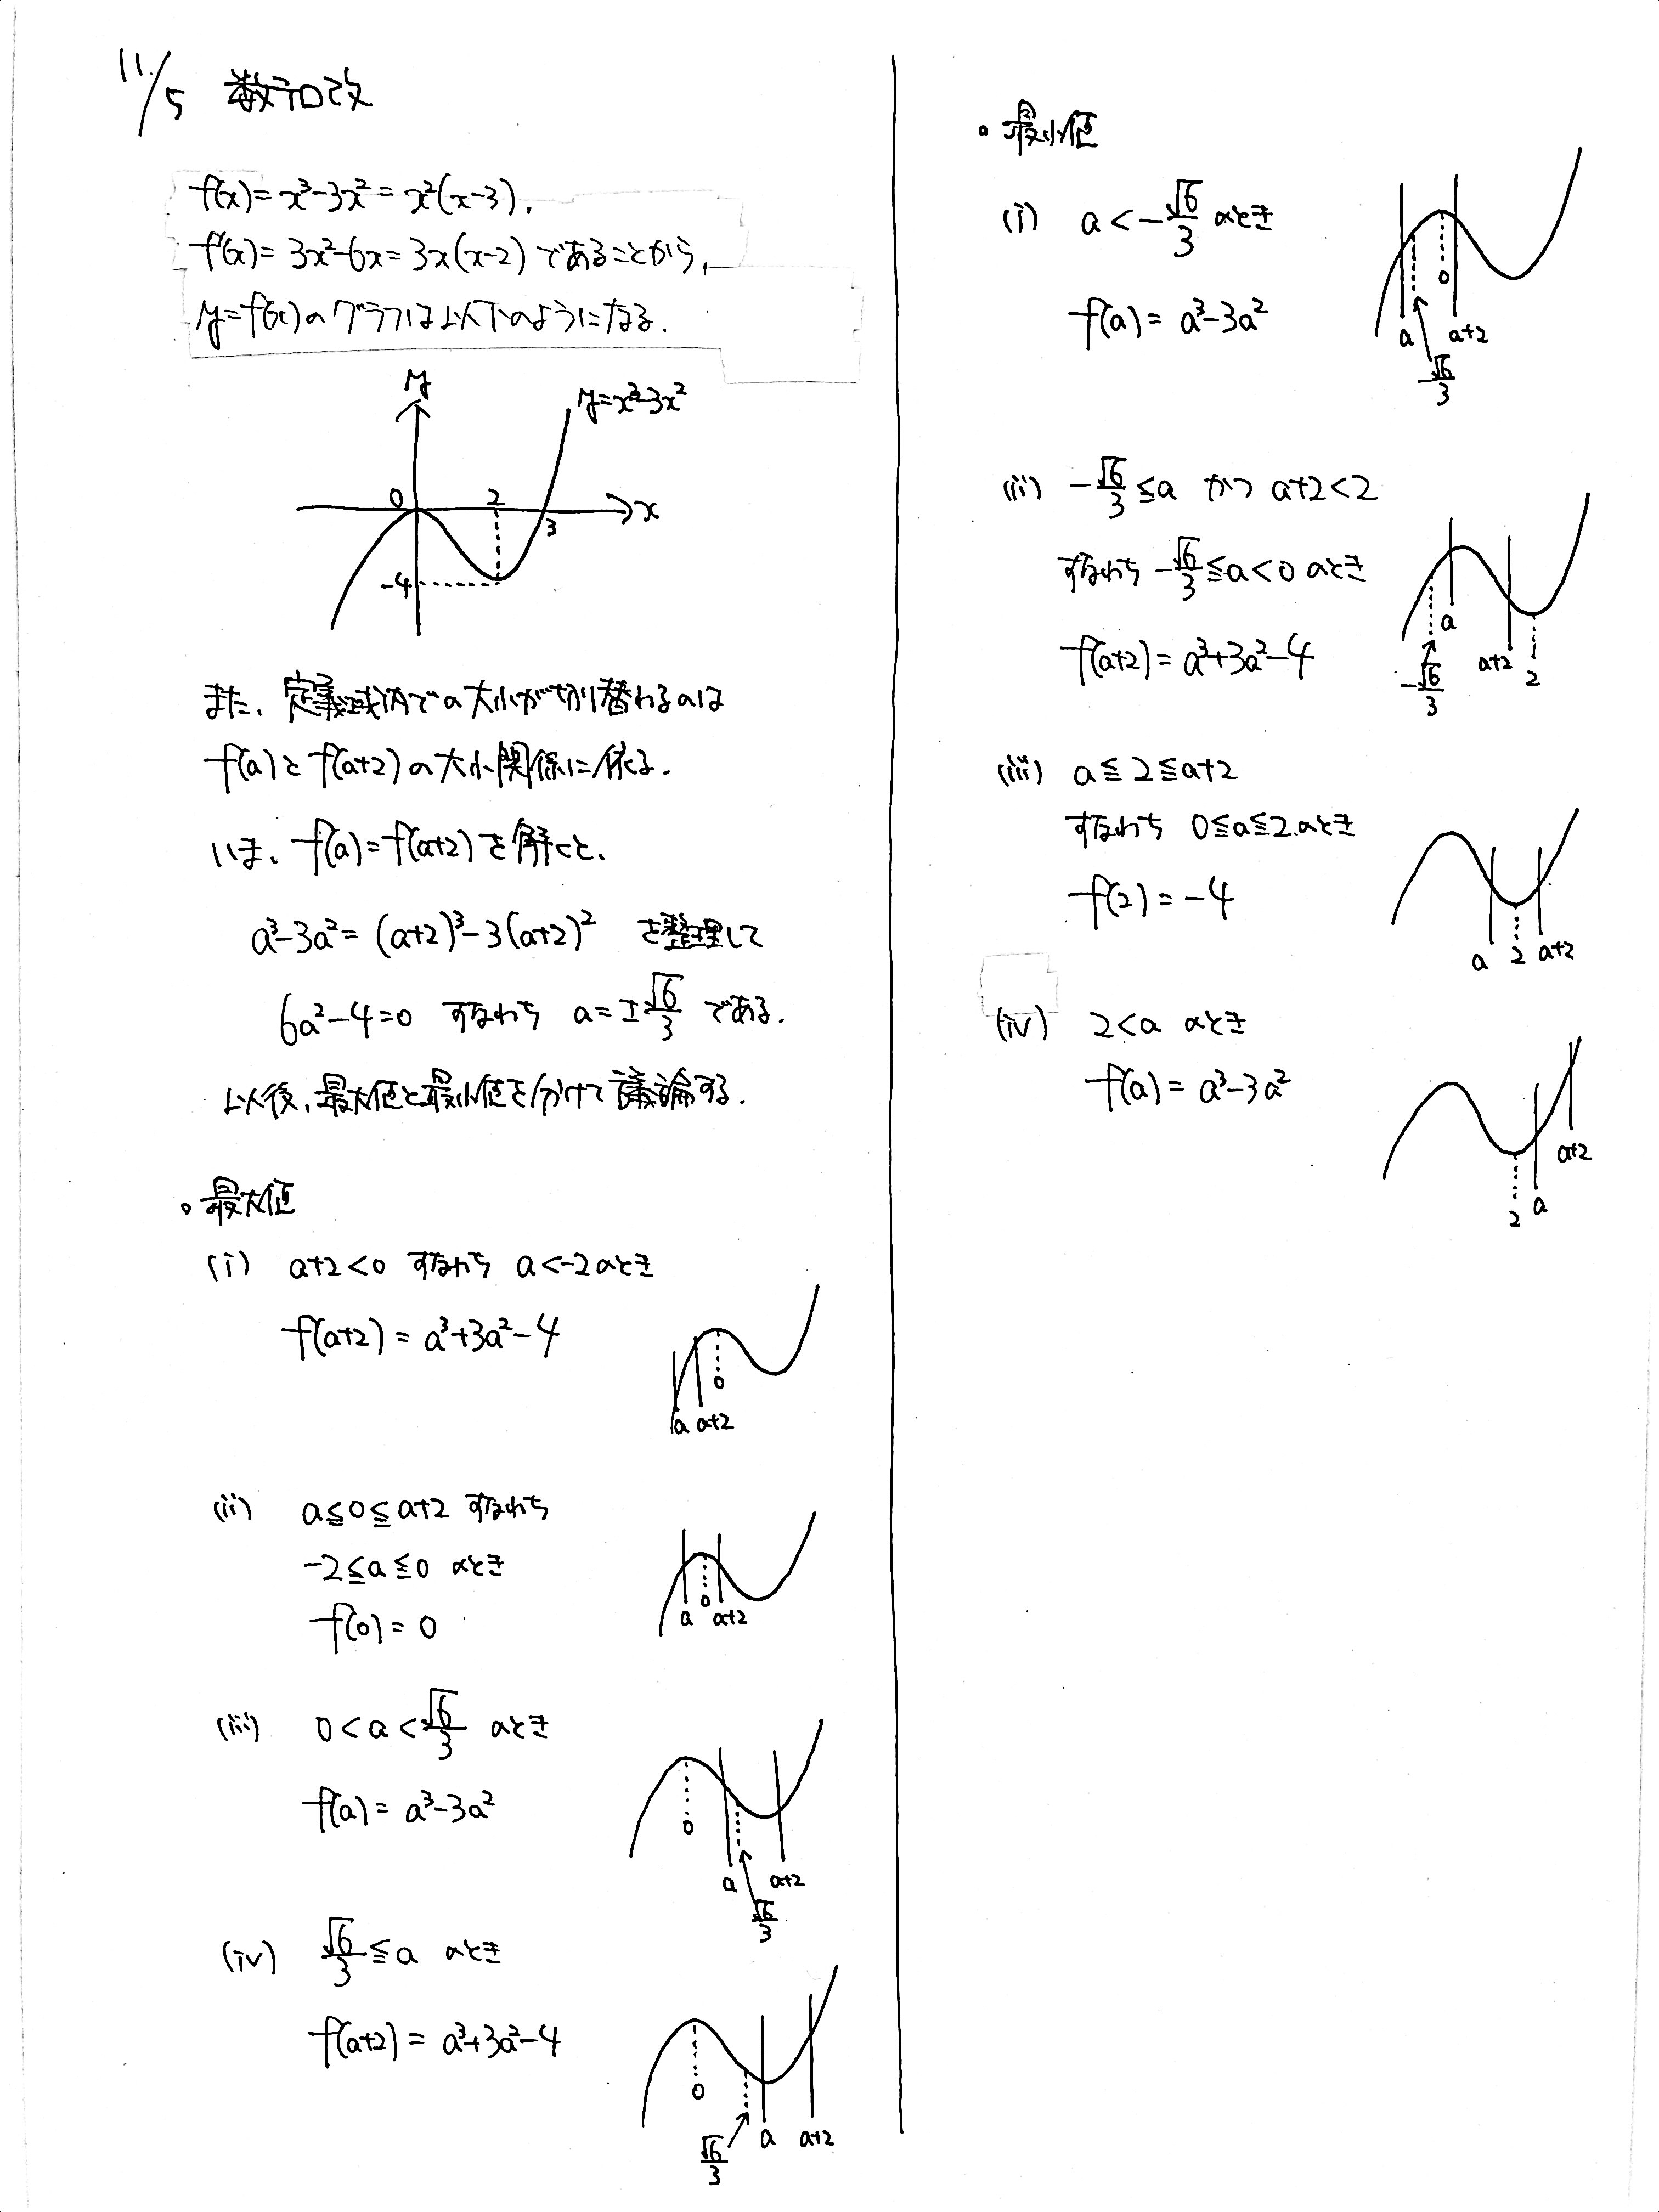 11/5 数テロ改
f(x)=x³-3x²=x²(x-3),
f'(x)=3x²-6x=3x(x-2)であることから,
y=f(x)のグラフは以下のようになる.
y
y=x³-3x²
0 2
3 x
-4
また、定義域内での大小が切り替わるのは
f(a)とf(a+2)の大小関係に依る.
いま、f(a)=f(a+2)を解くと、
a³-3a²=(a+2)³-3(a+2)² を整理して
6a²-4=0 すなわち a=±√6/3 である.
以後、最大値と最小値を分けて議論する.
。最大値
(i) a+2<0 すなわち a<-2のとき
f(a+2)=a³+3a²-4
0
a a+2
(ii) a≦0≦a+2 すなわち
-2≦a≦0 のとき
f(0)=0
0
a a+2
(iii) 0<a<√6/3 のとき
f(a)=a³-3a²
0
a a+2
√6/3
(iv) √6/3≦a のとき
f(a+2)=a³+3a²-4
0
√6/3 a a+2
。最小値
(i) a<-√6/3 のとき
f(a)=a³-3a²
0
a a+2
-√6/3
(ii) -√6/3≦a かつ a+2<2
すなわち -√6/3≦a<0 のとき
f(a+2)=a³+3a²-4
a
a+2 2
-√6/3
(iii) a≦2≦a+2
すなわち 0≦a≦2のとき
f(2)=-4
a 2 a+2
(iv) 2<a のとき
f(a)=a³-3a²
a+2
2 a